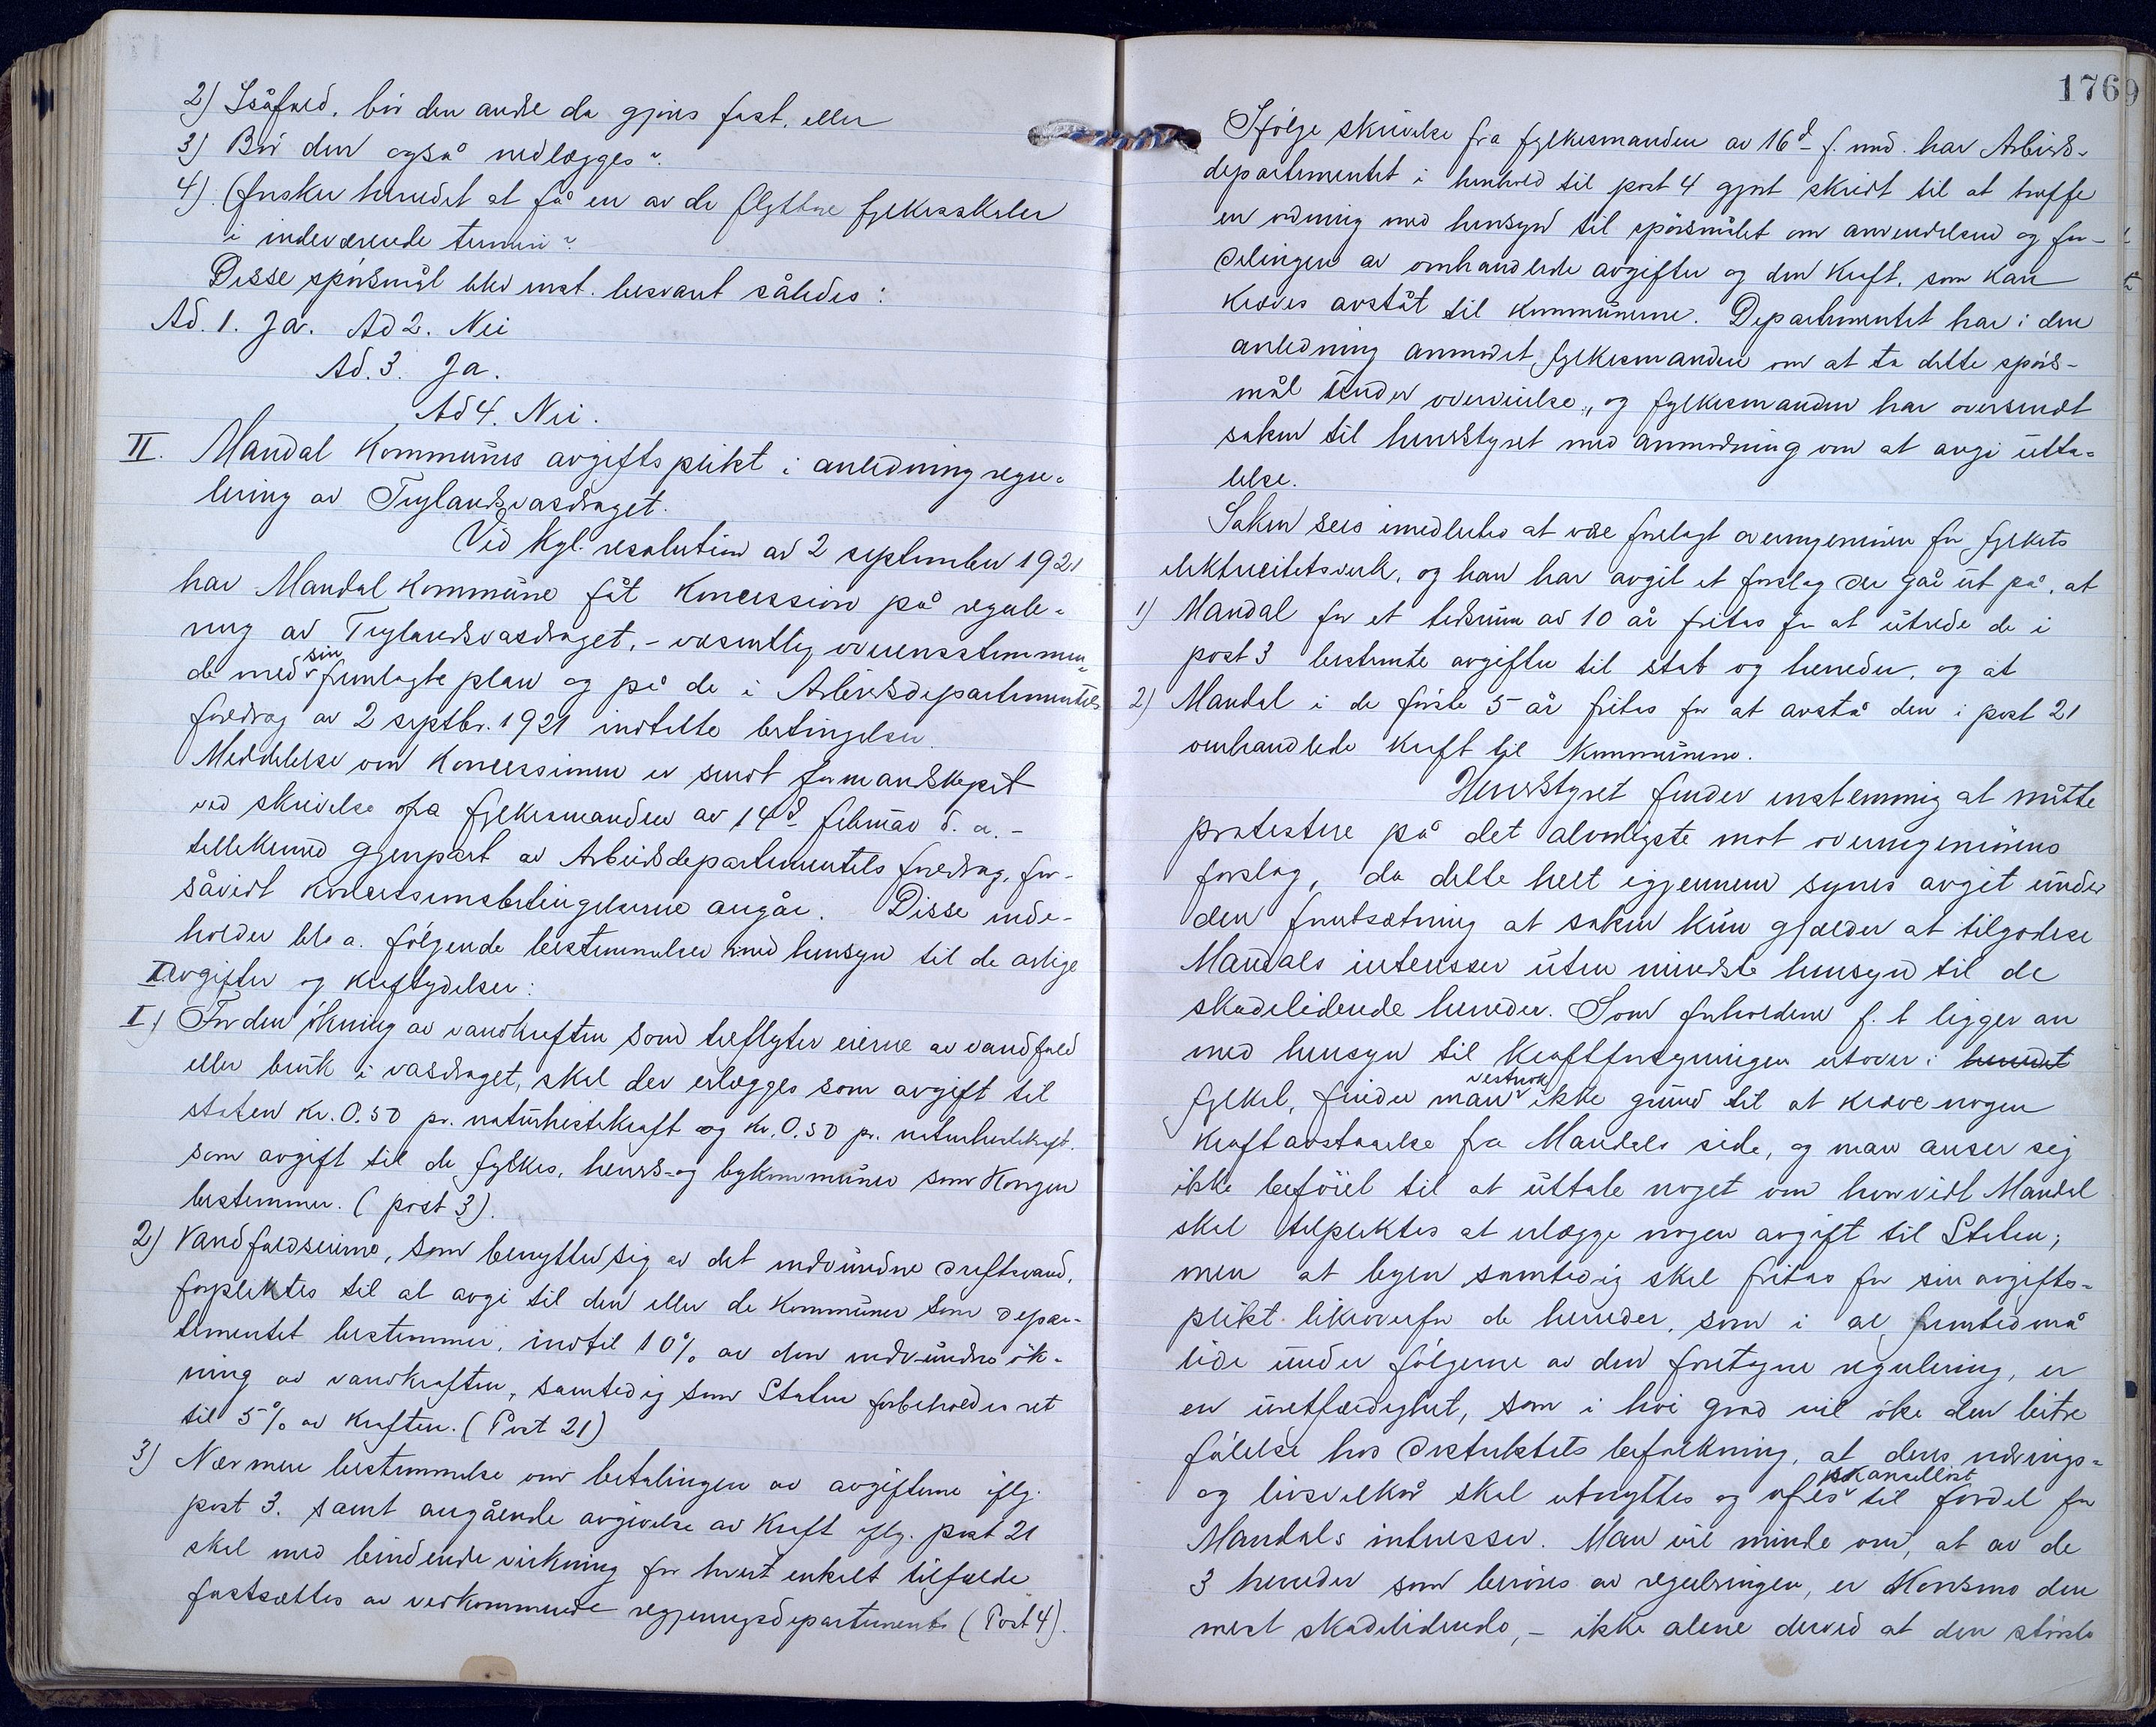 2) Isåfald, bör den andre da gjöres fast, eller
3) Bör den også nedlægges?
4) Ønsker herredet at få en av de flyttbare fylkesskoler
i indeværende termin?
Disse spörsmål blev enst. besvart således:
Ad. 1. Ja. Ad 2. Nei
Ad. 3. Ja.
Ad 4. Nei.
II. Mandal Kommunes avgiftsplikt i anledning regu-
lering av Trylandsvasdraget.
Ved Kgl. resolution av 2 september 1921
har Mandal Kommune fåt koncession på regule-
ring av Trylandsvasdraget, - væsentlig overensstemmen-
de med sin fremlagte plan og på de i Arbeidsdepartementets
foredrag av 2 septbr. 1921 indtelte betingelser.
Meddelelse om koncessionen er sendt formandskapet
ved skrivelse fra fylkesmanden av 14d februar d. a. -
tillikemed gjenpart av Arbeidsdepartementets foredrag, for-
såvidt koncessionsbetingelserne angår. Disse inde-
holder bl. a. følgende bestemmelser med hensyn til de årlige
avgifter og kraftydelser:
I) For den ökning av vandkraften som tilflyter eierne av vandfald
eller bruk i vasdraget, skal der erlægges som avgift til
staten kr. 0.50 pr. naturhestekraft og kr. 0.50 pr. naturhestekraft
som avgift til de fylkes, herreds- og bykommuner som Kongen
bestemmer. (post 3).
2) Vandfaldseierne, som benytter sig av det indvundne driftsvand,
forpliktes til at avgi til den eller de kommuner som depar-
tementet bestemmer, indtil 10% av den indvundne ök-
ning av vandkraften, samtidig som Staten forbeholdes ret
til 5% av kraften. (Post 21)
3) Nærmere bestemmelse om betalingen av avgifterne iflg.
post 3. samt angående avgivelse av kraft iflg. post 21
skal med bindende virkning for hvert enkelt tilfælde
fastsættes av vedkommende regjeringsdepartement (Post 4).
1769
Ifölge skrivelse fra fylkesmanden av 16d f. md. har Arbeids-
departementet i henhold til post 4 gjort skridt til at træffe
en ordning med hensyn til spörsmålet om anvendelsen og for-
delingen av omhandlede avgifter og den kraft, som kan
kræves avståt til kommunerne. Departementet har i den
anledning anmodet fylkesmanden om at ta dette spörs-
mål under overveielse, og fylkesmanden har oversendt
saken til herredstyret med anmodning om at avgi utta-
lelse.
Saken sees imedlertid at være forelagt overingeniören for fylkets
elektricitetsverk, og han har avgit et forslag der går ut på, at
1) Mandal for et tidsrum av 10 år fritas for at utrede de i
post 3 bestemte avgifter til stat og herreder, og at
2) Mandal i de förste 5 år fritas for at avstå den i post 21
omhandlede kraft til kommunerne.
Herredstyret finder enstemmig at måtte
protestere på det alvorligste mot overingeniörens
forslag, da dette helt igjennem synes avgit under
den forutsætning at saken kun gjælder at tilgodese
Mandals interesser uten mindste hensyn til de
skadelidende herreder. Som forholdene f. t. ligger an
med hensyn til kraftforsyningen utover i herredet
fylket, finder man vistnok ikke grund til at kræve nogen
kraftavståelse fra Mandals side, og man anser sig
ikke beföiet til at uttale noget om hvorvidt Mandal
skal tilpliktes at erlægge nogen avgift til Staten;
men at byen samtidig skal fritas for sin avgifts-
plikt likeoverfor de herreder, som i al fremtid må
lide under fölgerne av den foretagne regulering, er
en uretfærdighet, som i höi grad vil öke den bitre
fölelse hos distriktets befolkning, at dens nærings-
og livsvilkår skal utnyttes og ofres skånsellöst til fordel for
Mandals interesser. Man vil minde om, at av de
3 herreder som beröres av reguleringen, er Konsmo den
mest skadelidende, - ikke alene derved at den störste